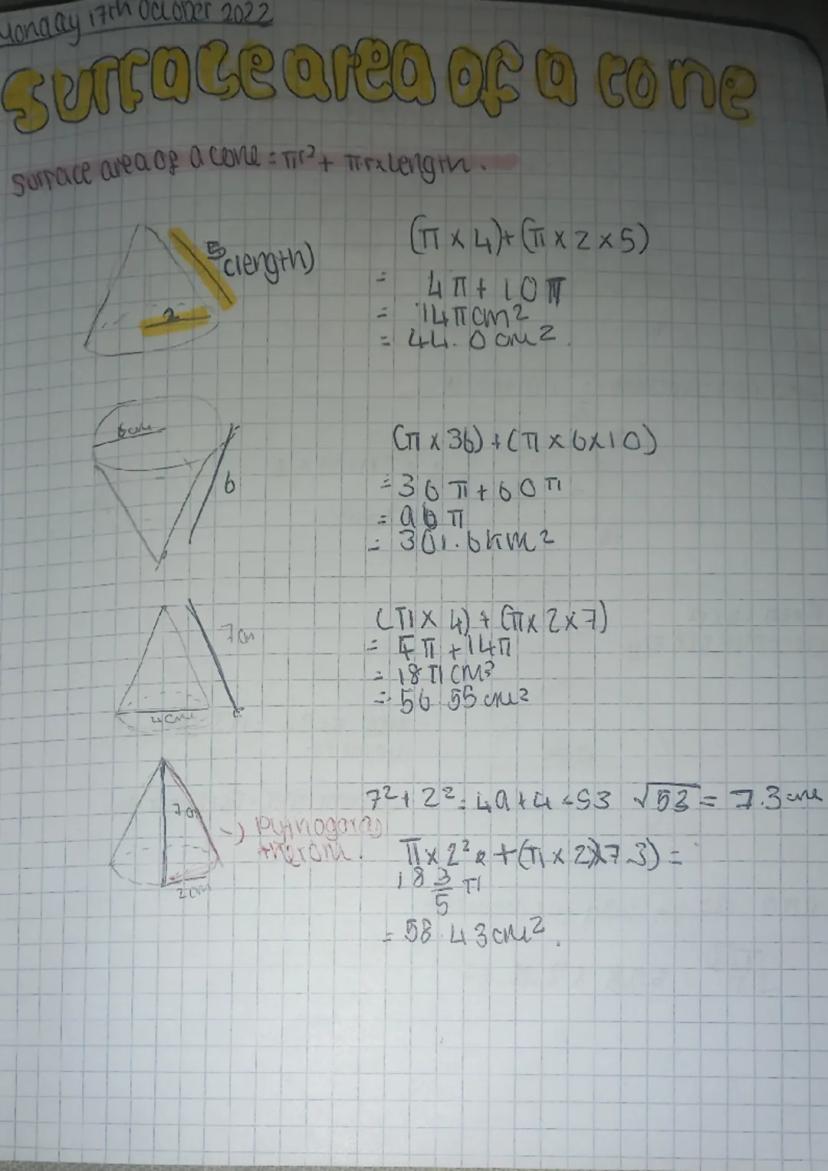 Monday 17th October 2022
Surface area of a cone
Surface area of a cone = πr² + πr×length.
5 (length)
2
(π × 4) + (π × 2 × 5)
= 4π + 10π
= 14π cm²
= 44.0 cm².
6cm
6
(π × 36) + (π × 6 × 10)
= 36π + 60π
= 96π
= 301.6km²
7cm
4cm
(π × 4) + (π × 2 × 7)
= 4π + 14π
= 18π cm²
= 56 55cm²
7cm
2cm
7² + 2² = 49 + 4 = 53 √53 = 7.3 cm
π × 2² + (π × 2)×7 3) =
18 3/5 π
= 58 43cm².